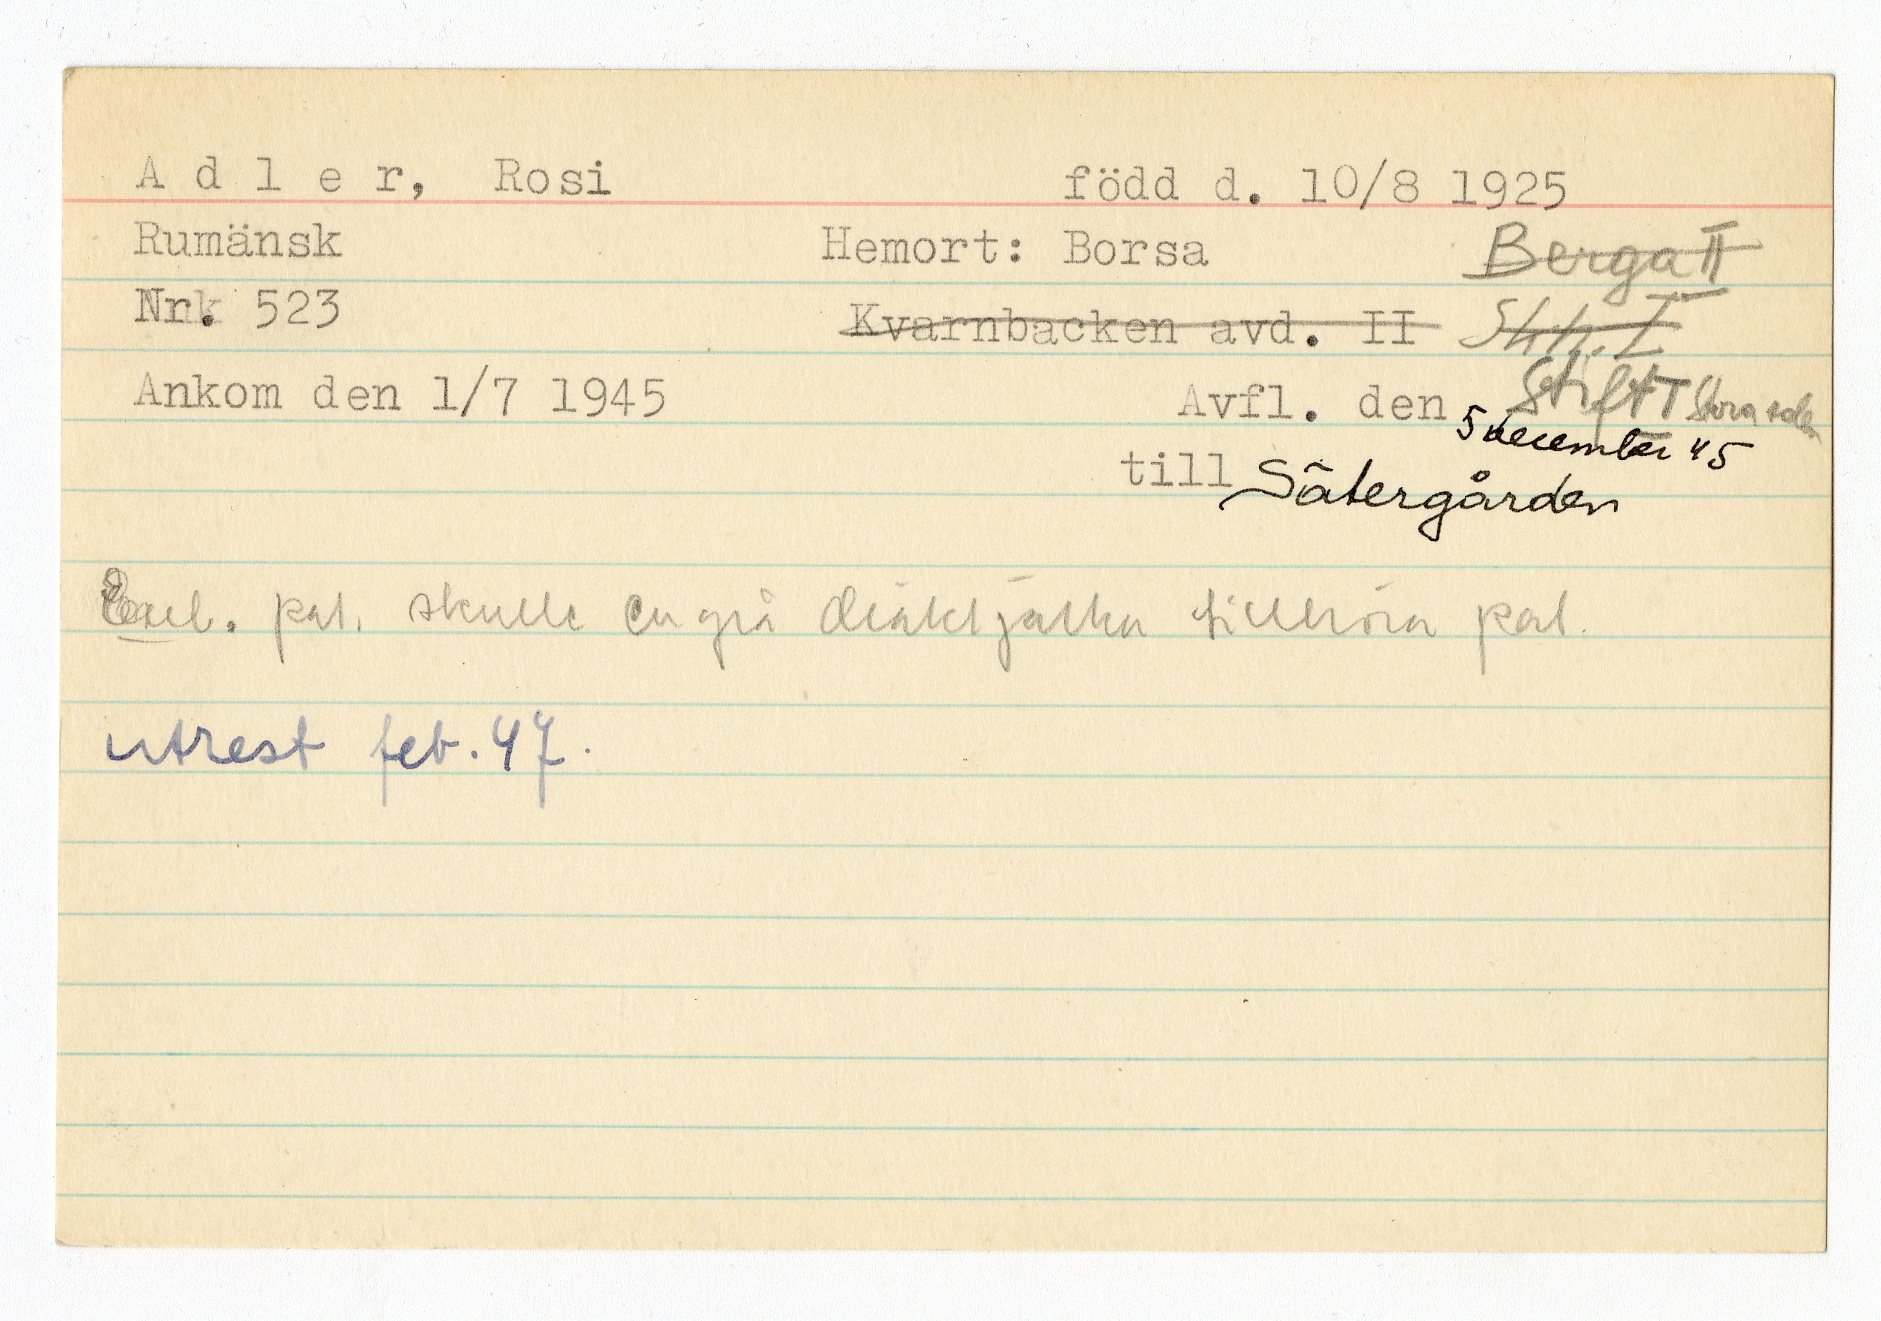 A d l e r, Rosi född d. 10/8 1925
Rumänsk Hemort: Borsa Berga II
Nr. 523 Kvarnbacken avd. II
Ankom den 1/7 1945 Avfl. den Stift I
5 december 45
till Sätergården
pat. skulle en grå dräktjacka tillhöra pat.
utrest feb. 47.